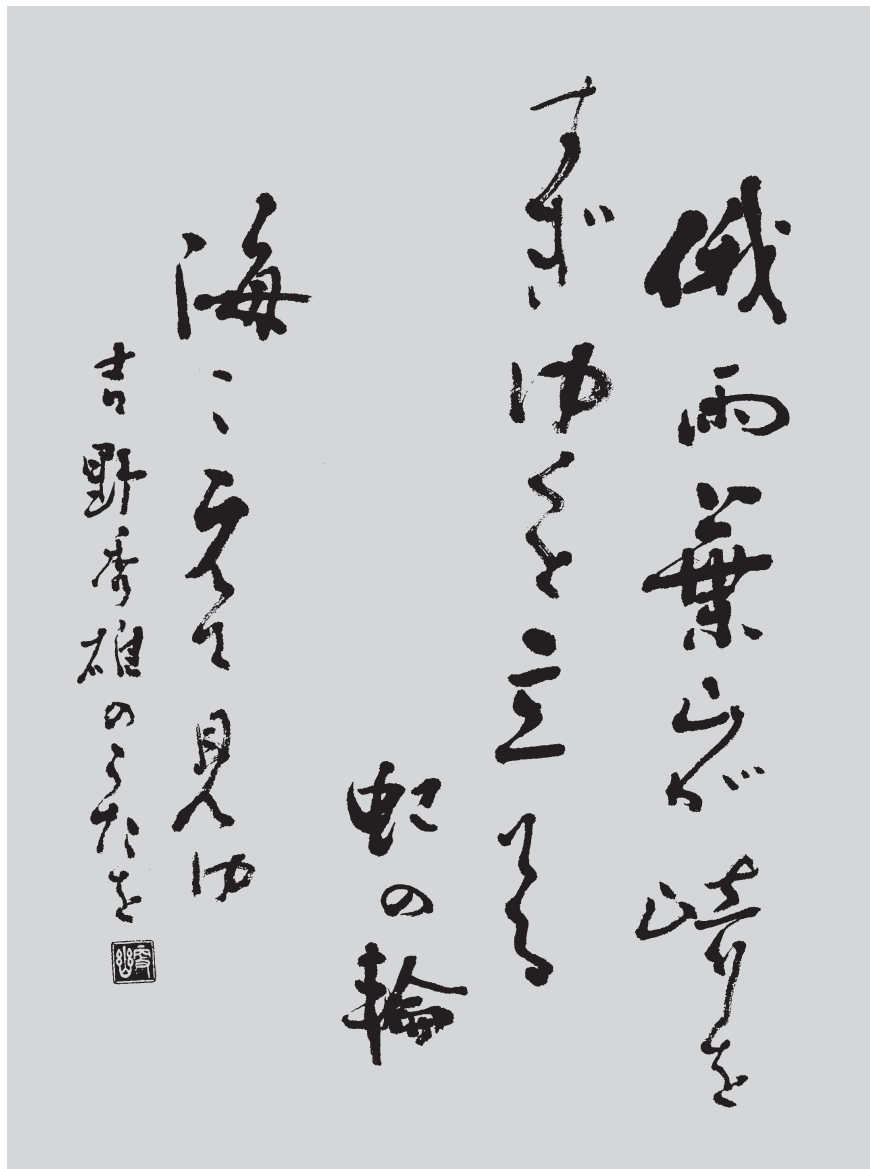 俄雨葉山が崎を
すぎゆくと立てる
虹の輪
海こえて見ゆ
吉野秀雄のうたを